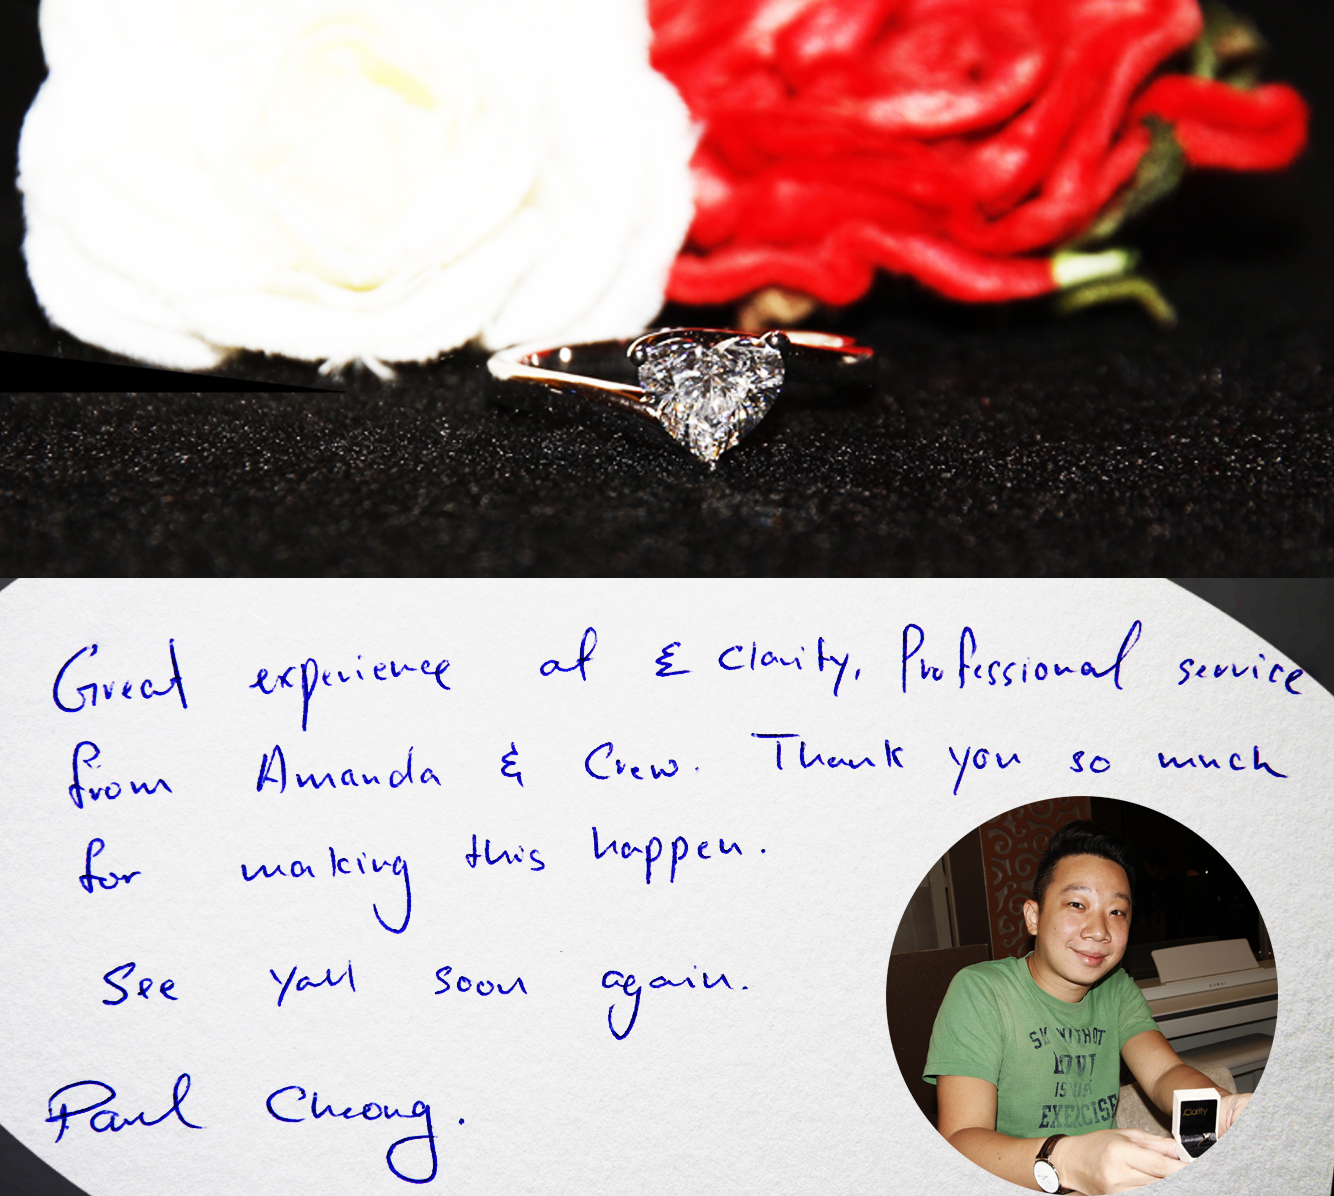 Great experience at E Clarity, Professional service
from Amanda & Crew. Thank you so much
for making this happen.
See yall soon again.
Paul Cheong.
LOVE
IS
EXERCISE
Clarity